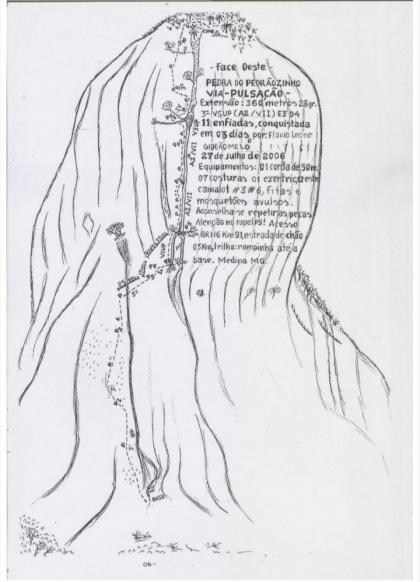 - Face Oeste
PEDRA DO PEDRÃOZINHO
VIA-PULSAÇÃO-
Extensão: 360 metros 28 gr.
3º VSUP (A2/VII) E3 D4
11 enfiadas, conquistada
em 03 dias por: Flavio Leone
e
GIDEÃO MELO
27 de julho de 2006
Equipamentos: 01 corda de 50m,
07 costuras 01 exentric,
camalot #3 #6, fitas e
mosquetões avulsos.
Aconselha-se repetir as peças
Atenção no rapel Ps! Acesso
BR116 Km 91, estrada de chão
03Km, trilha: rampinha até a
base. Medina MG
A2/VII
VSUP
A2/VII
A2/VII
VSUP
3º
BASE
06-